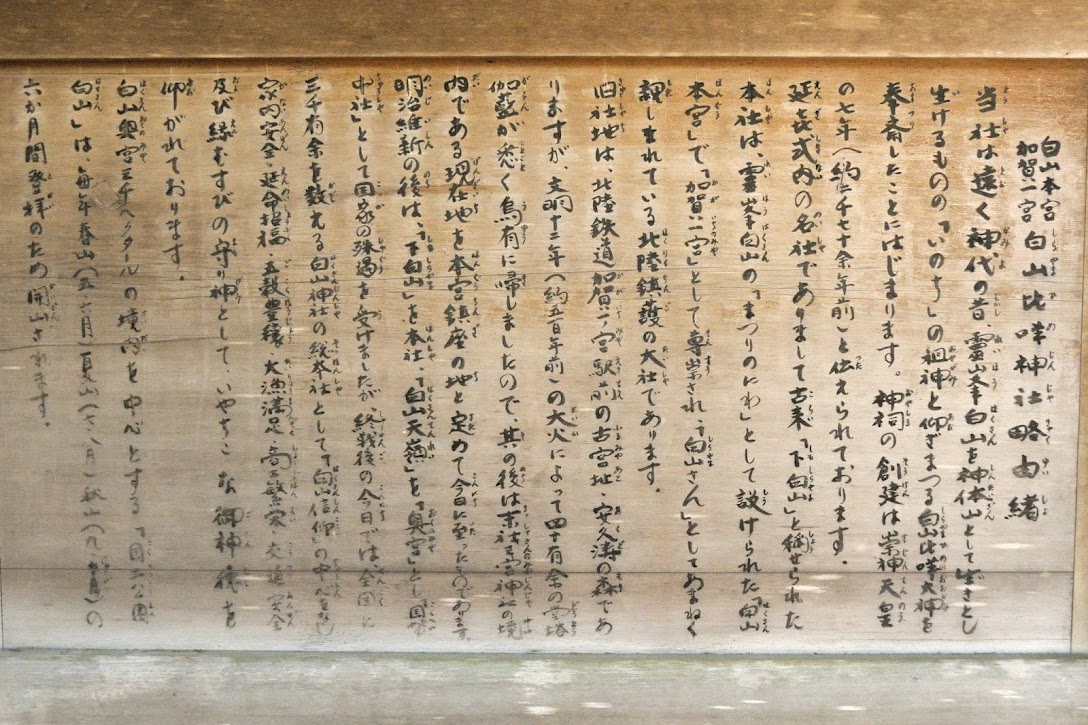 白山本宮
加賀一宮 白山比咩神社略由緒
当社は遠く神代の昔、霊峰白山を神体山として生きとし
生けるものの「いのち」の祖神と仰ぎまつる白山比咩大神を
奉斎したことにはじまります。神祠の創建は崇神天皇
の七年(約二千七十余年前)と伝えられております。
延喜式内の名社でありまして古来「下白山」と称せられた
本社は、霊峯白山の「まつりのにわ」として設けられた「白山
本宮」で「加賀一宮」として尊崇され、「白山さん」としてあまねく
親しまれている北陸鎮護の大社であります。
旧社地は、北陸鉄道加賀一の宮駅前の古宮址・安久涛の森であ
りますが、文明十二年(約五百年前)の大火によって四十有余の堂塔
伽藍が悉く烏有に帰しましたので、其の後は末社三宮神社の境
内である現在地を本宮鎮座の地と定めて今日に至ったのであります。
明治維新の後は、「下白山」を本社、「白山天嶺」を「奥宮」とし国幣
中社」として国家の殊遇を受けましたが、終戦後の今日では、全国に
三千有余を数える白山神社の総本社として「白山信仰」の中心をなし
家内安全・延命招福・五穀豊穣・大漁満足・商工繁栄・交通安全
及び縁むすびの守り神として いやちこな御神徳を
仰がれております。
白山奥宮三千ヘクタールの境内を中心とする「国立公園
白山」は、毎年春山(五、六月)夏山(七、八月)秋山(九、十月)の
六か月間登拝のため開山されます。